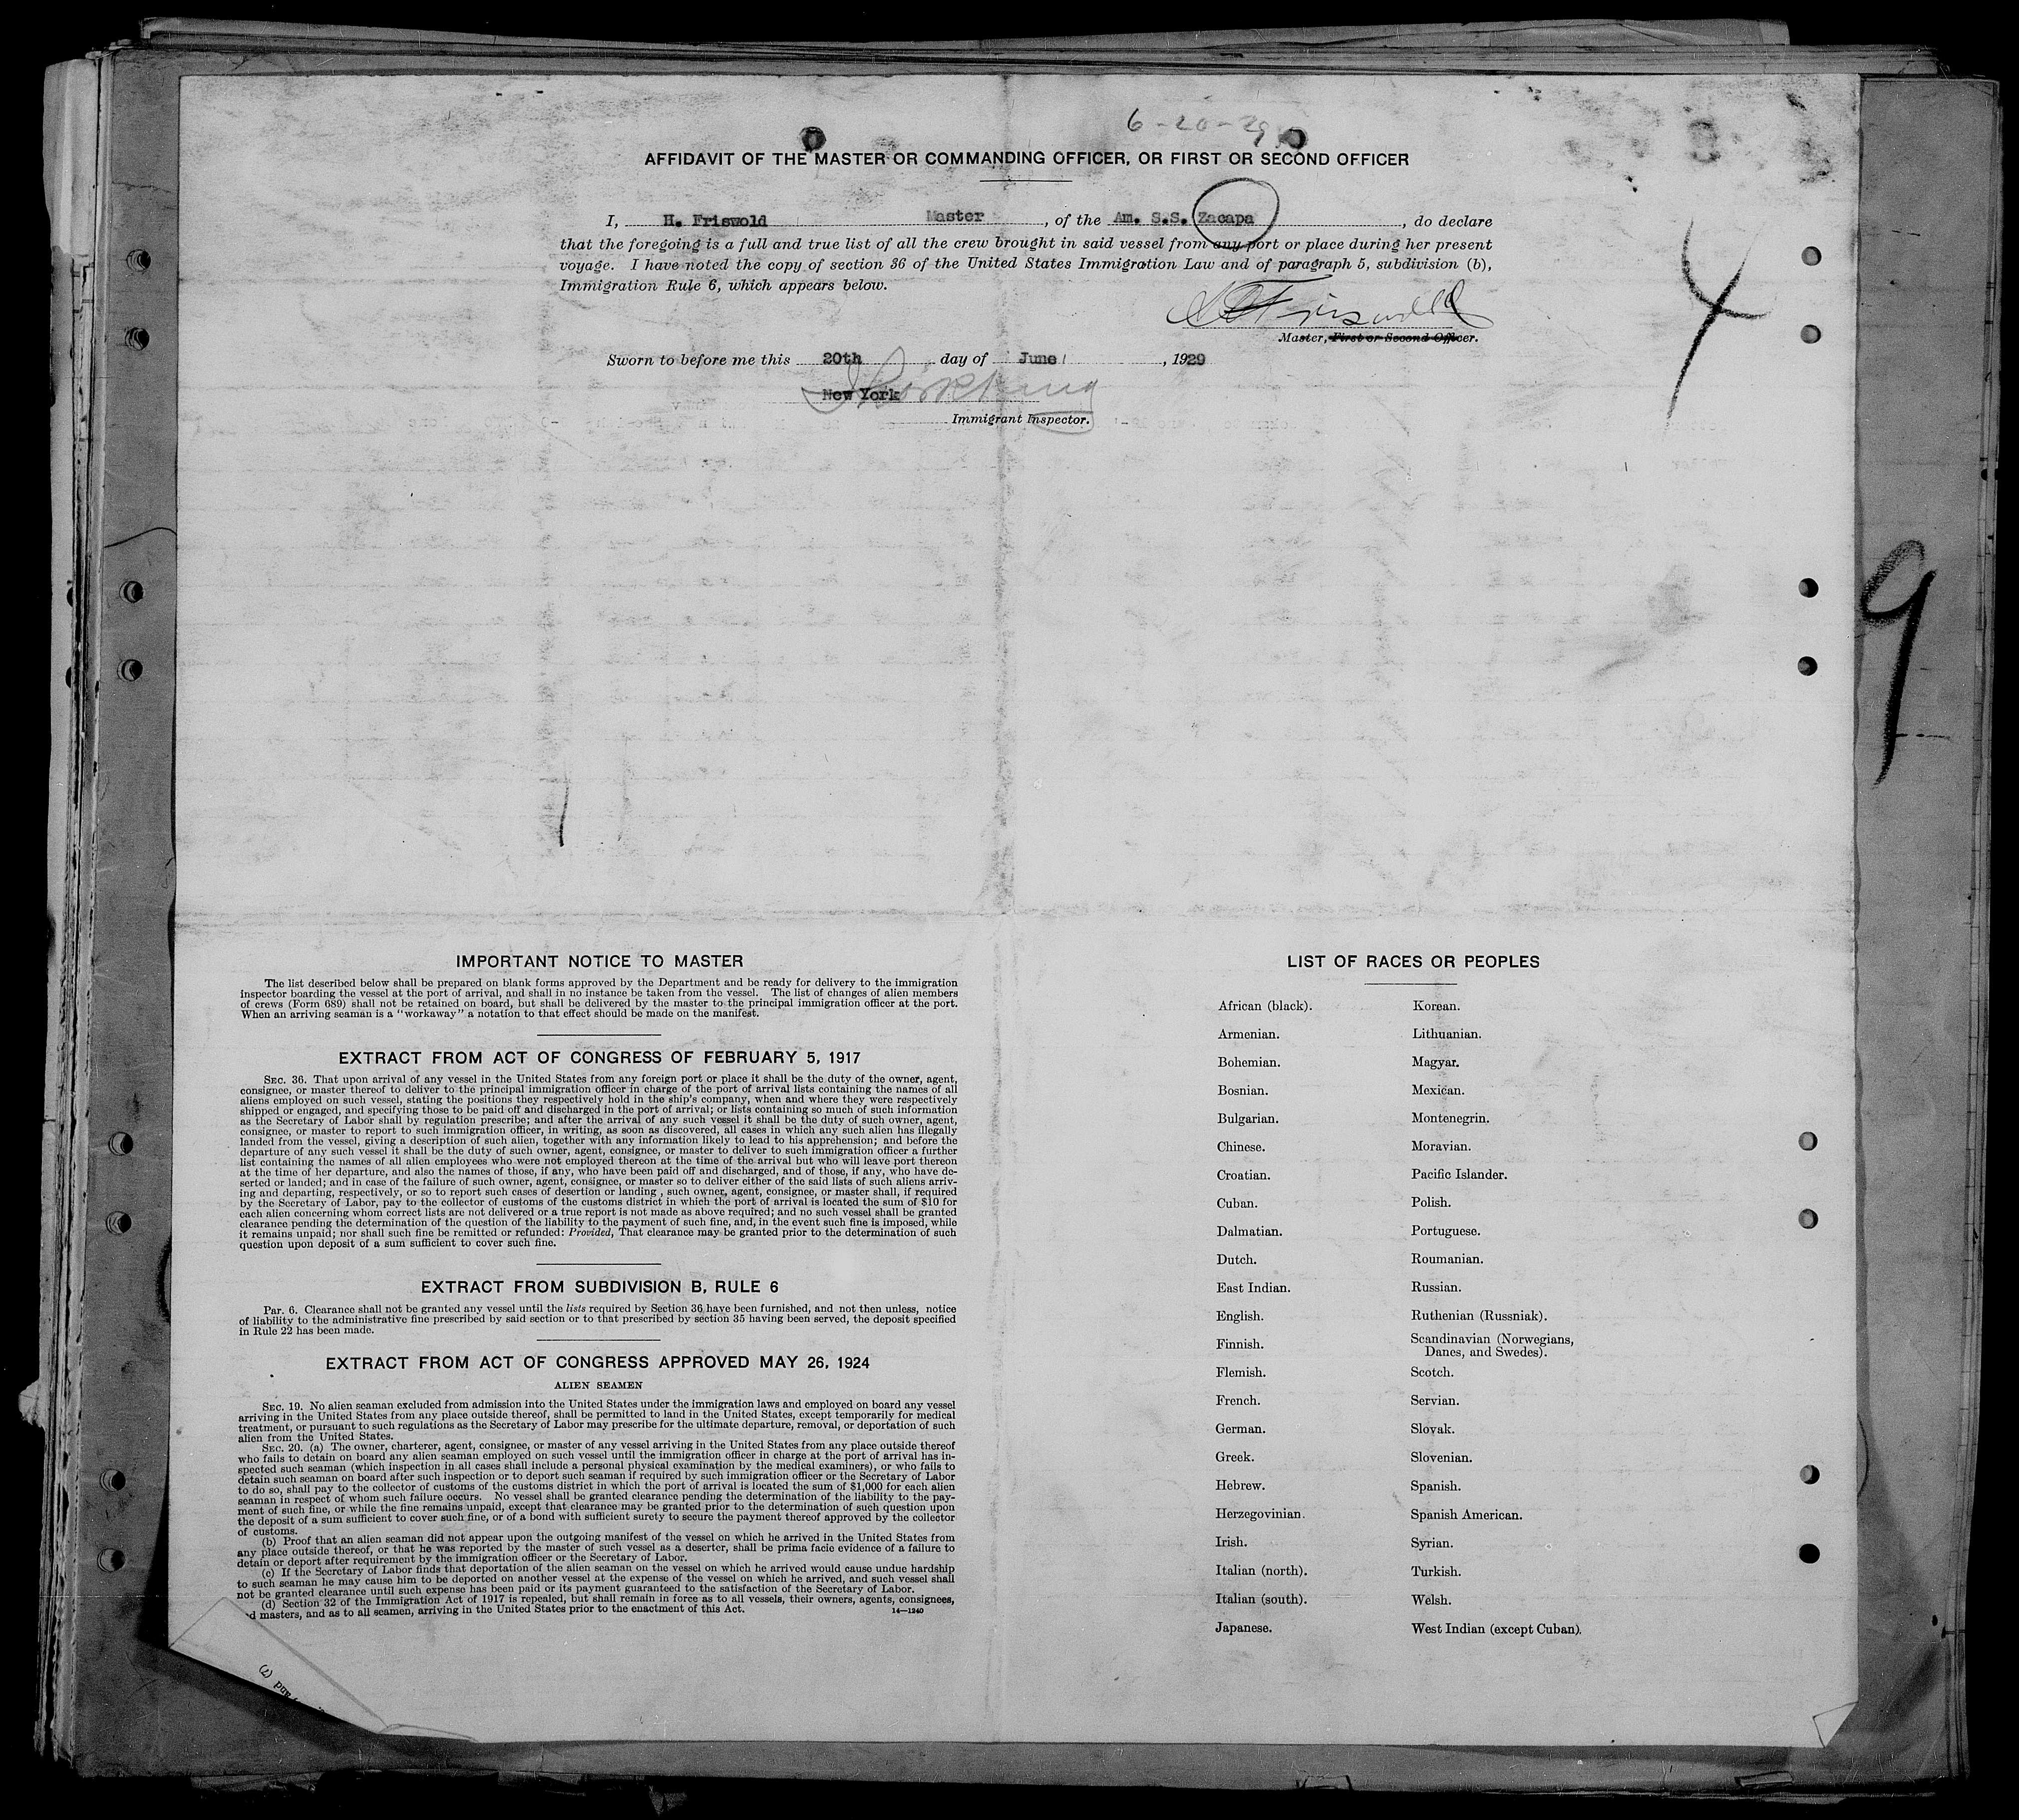 6-20-29
AFFIDAVIT OF THE MASTER OR COMMANDING OFFICER, OR FIRST OR SECOND OFFICER
I, H. Friswold Master, of the Am. S.S. Zacapa, do declare
that the foregoing is a full and true list of all the crew brought in said vessel from any port or place during her present
voyage. I have noted the copy of section 36 of the United States Immigration Law and of paragraph 5, subdivision (b),
Immigration Rule 6, which appears below.
Friswold
Master, First or Second Officer.
Sworn to before me this 20th day of June, 1929
New York
Immigrant Inspector.
4
9
IMPORTANT NOTICE TO MASTER
The list described below shall be prepared on blank forms approved by the Department and be ready for delivery to the immigration
inspector boarding the vessel at the port of arrival, and shall in no instance be taken from the vessel. The list of changes of alien members
of crews (Form 689) shall not be retained on board, but shall be delivered by the master to the principal immigration officer at the port.
When an arriving seaman is a "workaway" a notation to that effect should be made on the manifest.
EXTRACT FROM ACT OF CONGRESS OF FEBRUARY 5, 1917
SEC. 36. That upon arrival of any vessel in the United States from any foreign port or place it shall be the duty of the owner, agent,
consignee, or master thereof to deliver to the principal immigration officer in charge of the port of arrival lists containing the names of all
aliens employed on such vessel, stating the positions they respectively hold in the ship's company, when and where they were respectively
shipped or engaged, and specifying those to be paid off and discharged in the port of arrival; or lists containing so much of such information
as the Secretary of Labor shall by regulation prescribe; and after the arrival of any such vessel it shall be the duty of such owner, agent,
consignee, or master to report to such immigration officer, in writing, as soon as discovered, all cases in which any such alien has illegally
landed from the vessel, giving a description of such alien, together with any information likely to lead to his apprehension; and before the
departure of any such vessel it shall be the duty of such owner, agent, consignee, or master to deliver to such immigration officer a further
list containing the names of all alien employees who were not employed thereon at the time of the arrival but who will leave port thereon
at the time of her departure, and also the names of those, if any, who have been paid off and discharged, and of those, if any, who have de-
serted or landed; and in case of the failure of such owner, agent, consignee, or master so to deliver either of the said lists of such aliens arriv-
ing and departing, respectively, or so to report such cases of desertion or landing, such owner, agent, consignee, or master shall, if required
by the Secretary of Labor, pay to the collector of customs of the customs district in which the port of arrival is located the sum of $10 for
each alien concerning whom correct lists are not delivered or a true report is not made as above required; and no such vessel shall be granted
clearance pending the determination of the question of the liability to the payment of such fine, and, in the event such fine is imposed, while
it remains unpaid; nor shall such fine be remitted or refunded: Provided, That clearance may be granted prior to the determination of such
question upon deposit of a sum sufficient to cover such fine.
EXTRACT FROM SUBDIVISION B, RULE 6
Par. 6. Clearance shall not be granted any vessel until the lists required by Section 36 have been furnished, and not then unless, notice
of liability to the administrative fine prescribed by said section or to that prescribed by section 35 having been served, the deposit specified
in Rule 22 has been made.
EXTRACT FROM ACT OF CONGRESS APPROVED MAY 26, 1924
ALIEN SEAMEN
SEC. 19. No alien seaman excluded from admission into the United States under the immigration laws and employed on board any vessel
arriving in the United States from any place outside thereof, shall be permitted to land in the United States, except temporarily for medical
treatment, or pursuant to such regulations as the Secretary of Labor may prescribe for the ultimate departure, removal, or deportation of such
alien from the United States.
SEC. 20. (a) The owner, charterer, agent, consignee, or master of any vessel arriving in the United States from any place outside thereof
who fails to detain on board any alien seaman employed on such vessel until the immigration officer in charge at the port of arrival has in-
spected such seaman (which inspection in all cases shall include a personal physical examination by the medical examiners), or who fails to
detain such seaman on board after such inspection or to deport such seaman if required by such immigration officer or the Secretary of Labor
to do so, shall pay to the collector of customs of the customs district in which the port of arrival is located the sum of $1,000 for each alien
seaman in respect of whom such failure occurs. No vessel shall be granted clearance pending the determination of the liability to the pay-
ment of such fine, or while the fine remains unpaid, except that clearance may be granted prior to the determination of such question upon
the deposit of a sum sufficient to cover such fine, or of a bond with sufficient surety to secure the payment thereof approved by the collector
of customs.
(b) Proof that an alien seaman did not appear upon the outgoing manifest of the vessel on which he arrived in the United States from
any place outside thereof, or that he was reported by the master of such vessel as a deserter, shall be prima facie evidence of a failure to
detain or deport after requirement by the immigration officer or the Secretary of Labor.
(c) If the Secretary of Labor finds that deportation of the alien seaman on the vessel on which he arrived would cause undue hardship
to such seaman he may cause him to be deported on another vessel at the expense of the vessel on which he arrived, and such vessel shall
not be granted clearance until such expense has been paid or its payment guaranteed to the satisfaction of the Secretary of Labor.
(d) Section 32 of the Immigration Act of 1917 is repealed, but shall remain in force as to all vessels, their owners, agents, consignees,
d masters, and as to all seamen, arriving in the United States prior to the enactment of this Act.
14—1240
LIST OF RACES OR PEOPLES
African (black).
Armenian.
Bohemian.
Bosnian.
Bulgarian.
Chinese.
Croatian.
Cuban.
Dalmatian.
Dutch.
East Indian.
English.
Finnish.
Flemish.
French.
German.
Greek.
Hebrew.
Herzegovinian.
Irish.
Italian (north).
Italian (south).
Japanese.
Korean.
Lithuanian.
Magyar.
Mexican.
Montenegrin.
Moravian.
Pacific Islander.
Polish.
Portuguese.
Roumanian.
Russian.
Ruthenian (Russniak).
Scandinavian (Norwegians,
Danes, and Swedes).
Scotch.
Servian.
Slovak.
Slovenian.
Spanish.
Spanish American.
Syrian.
Turkish.
Welsh.
West Indian (except Cuban).